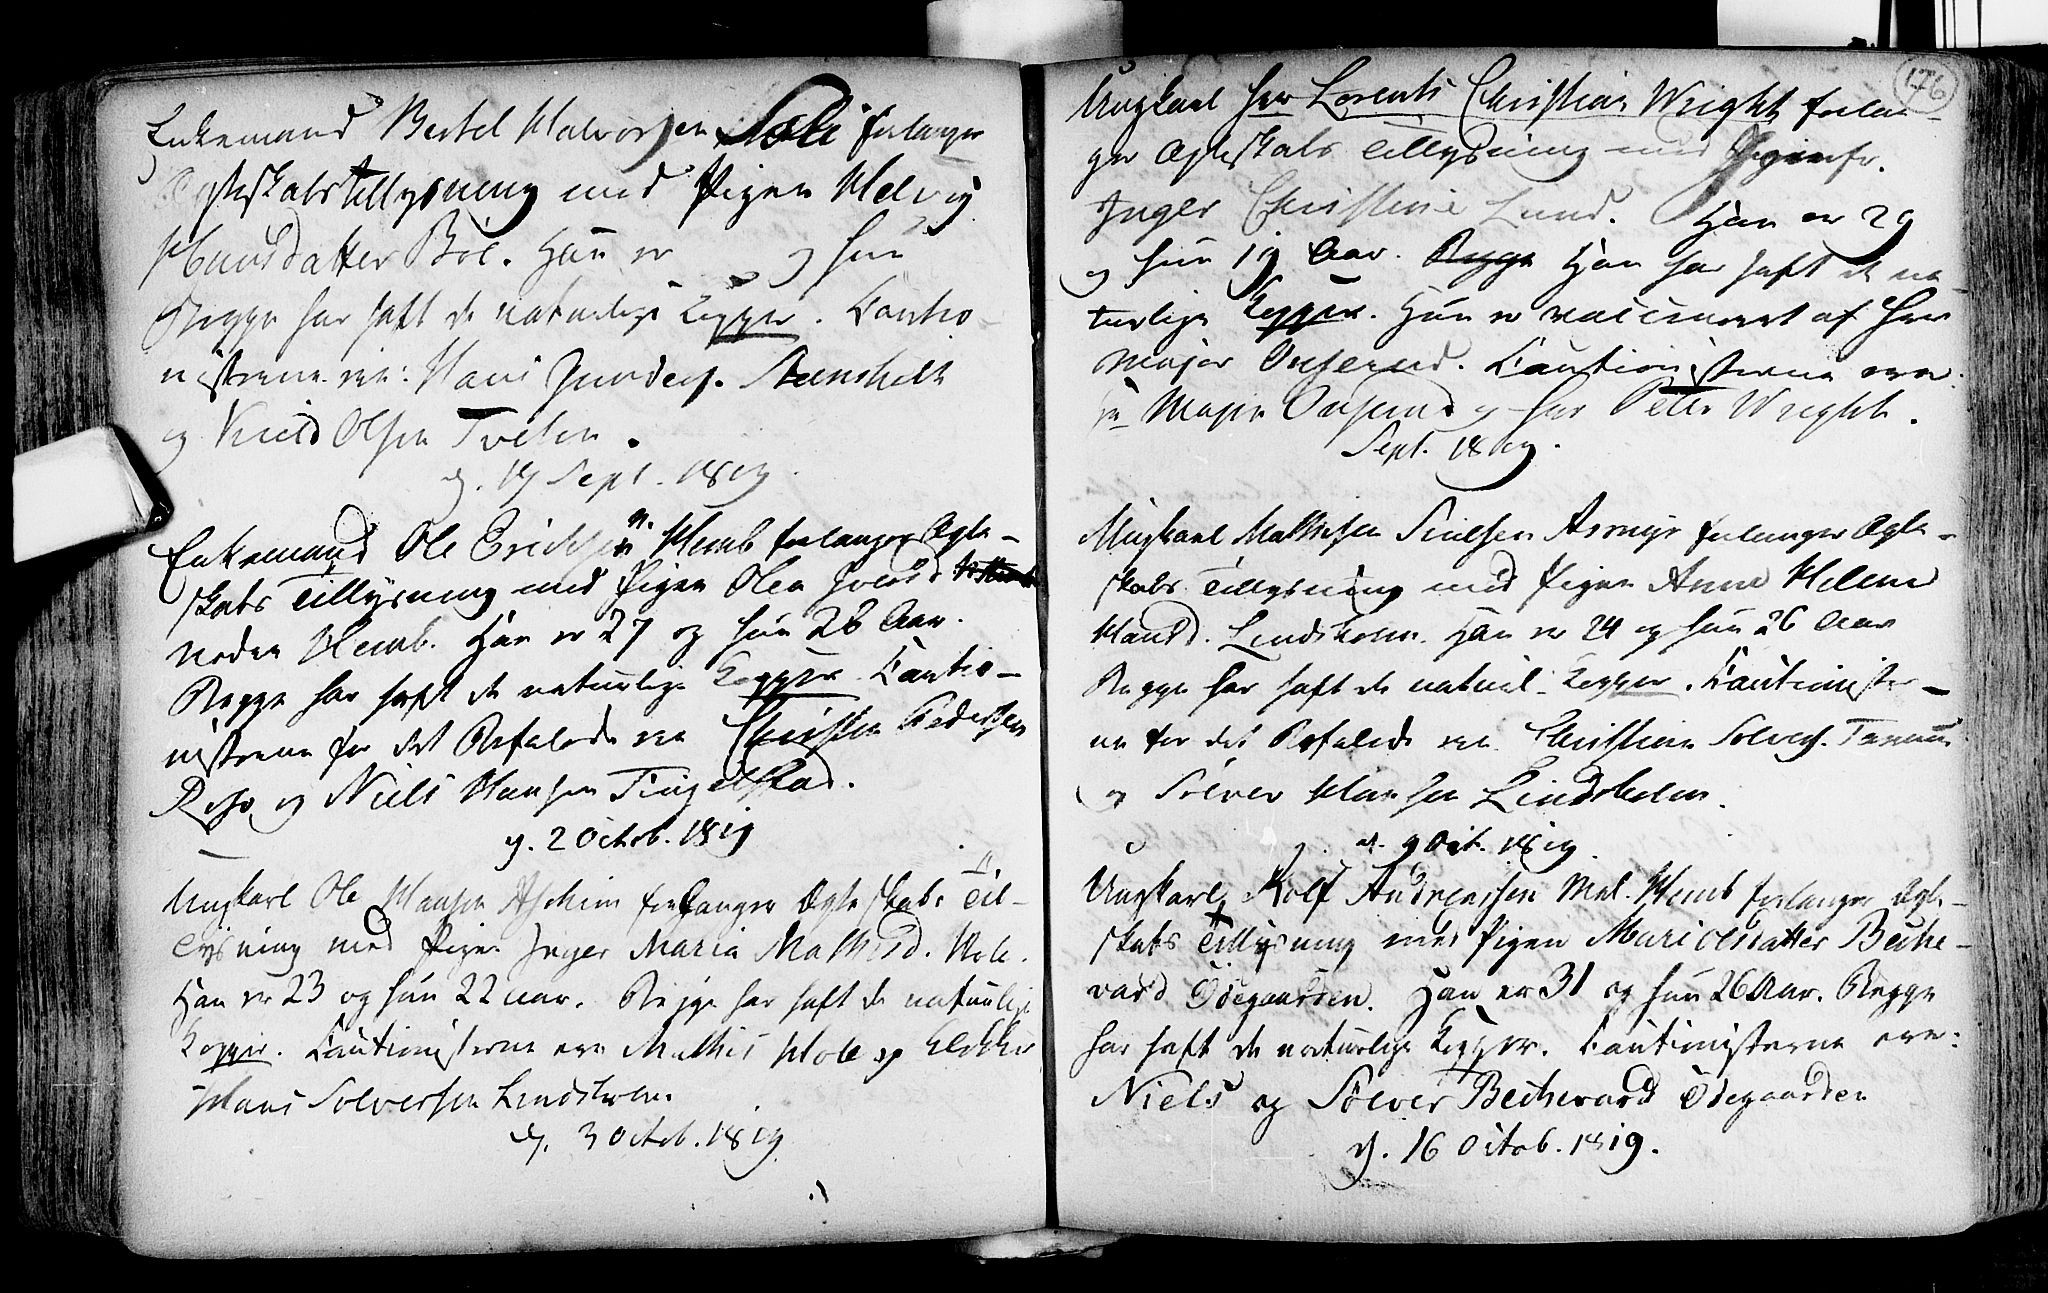 Enkemand Bertel Halvorsen Sæli forlanger
Ægteskabstillysning med Pigen Helvig
Hansdatter Böe. Han er og hun
Begge har haft de naturlige Kopper. Cautio-
nisterne ere: Hans Gundersen
og Knud Olsen Tveten.
d. 17 Sept. 1819.
Enkemand Ole Ericksen n. Hemb forlanger Ægte-
skabs Tillysning med Pigen Olea
neden Hemb. Han er 27 og hun 28 Aar.
Begge har haft de naturlige Kopper. Cautio-
nisterne for det Befalede ere Christen Pedersen
og Niels Hansen Tingelstad.
d. 2 Octob. 1819
Ungkarl Ole Hansen Askim forlanger Ægteskabs Til-
lysning med Pigen Inger Maria Mathisd. Hole.
Han er 23 og hun 22 aar. Begge har haft de naturlige
Kopper. Cautionisterne ere Mathis Hole og Klokker
Hans Solversen Lindsholm.
d. 3 Octob. 1819
176
Ungkarl Herr Lorents Christian Wright forlan-
ger Ægteskabs Tillysning med Jomfr.
Inger Christine Lund. Han er 29
og hun 19 Aar. Begge Han har haft de na-
turlige Kopper. Hun er vaccineret af Herr
Major Onserud. Cautionisterne ere:
Hr Major Onserud og Herr Peter Wright.
Sept. 1819.
Ungkarl Mathisen Asmyr forlanger Ægte-
skabs Tillysning med Pigen Anne Helene
Hansd. Lindsholm. Han er 24 og hun 26 Aar
Begge har haft de naturl. Kopper. Cautionister-
ne for det Befalede ere Christian Solves.
og Sölver Hansen Lindsholm.
d. 9 Oct. 1819.
Ungkarl Rolf Andreassen Mel. Hemb forlanger Ægte-
skabs Tillysning med Pigen Mari Olsdatter Beche-
vard Ödegaarden. Han er 31 og hun 26 Aar. Begge
har haft de naturlige Kopper. Cautionisterne ere:
Niels og Sölver Bechevard Ödegaarden
d. 16 Octob. 1819.